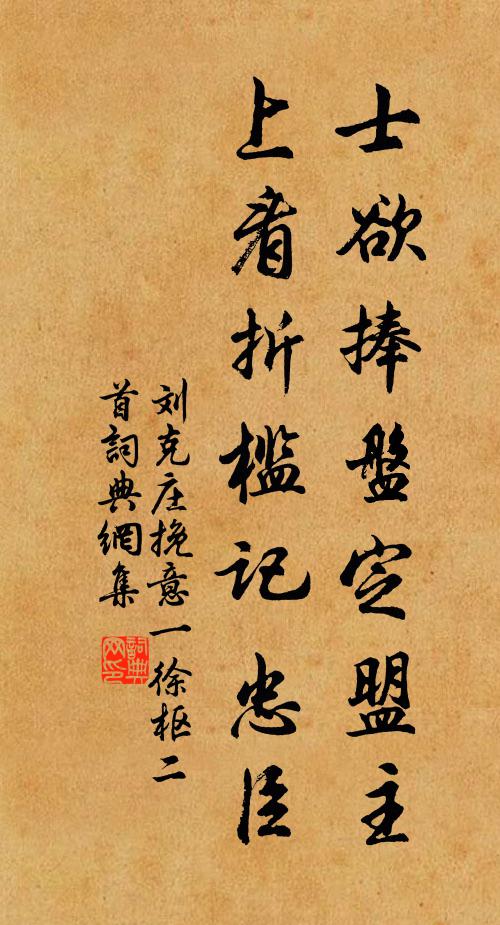 士欲捧盤定盟主
上看折檻記忠臣
刘克庄挽意一徐枢二
首詞典網集
詞典网印